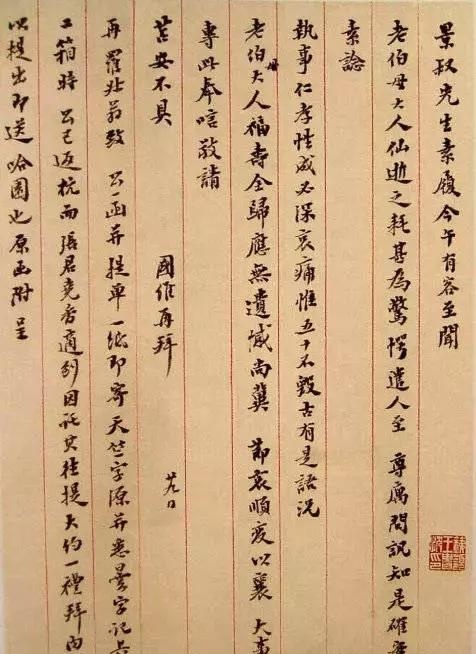 景叔先生素履今午有客至聞
老伯母大人仙逝之耗甚為驚愕遣人至 尊寓問訊知是確
素諗
執事仁孝性成必深哀痛惟五十不毀古有是語況
老伯母大人福壽全歸應無遺憾尚冀 節哀順變以襄 大事
專此奉唁敬請
苫安不具
國維再拜 廿九日
再 羅翁致 公一函并提單一紙即寄天竺字源并悉曇字記
箱時 公已返杭而張君堯香適到因託其往提大約一禮拜內
以提出即送哈園也原函附呈